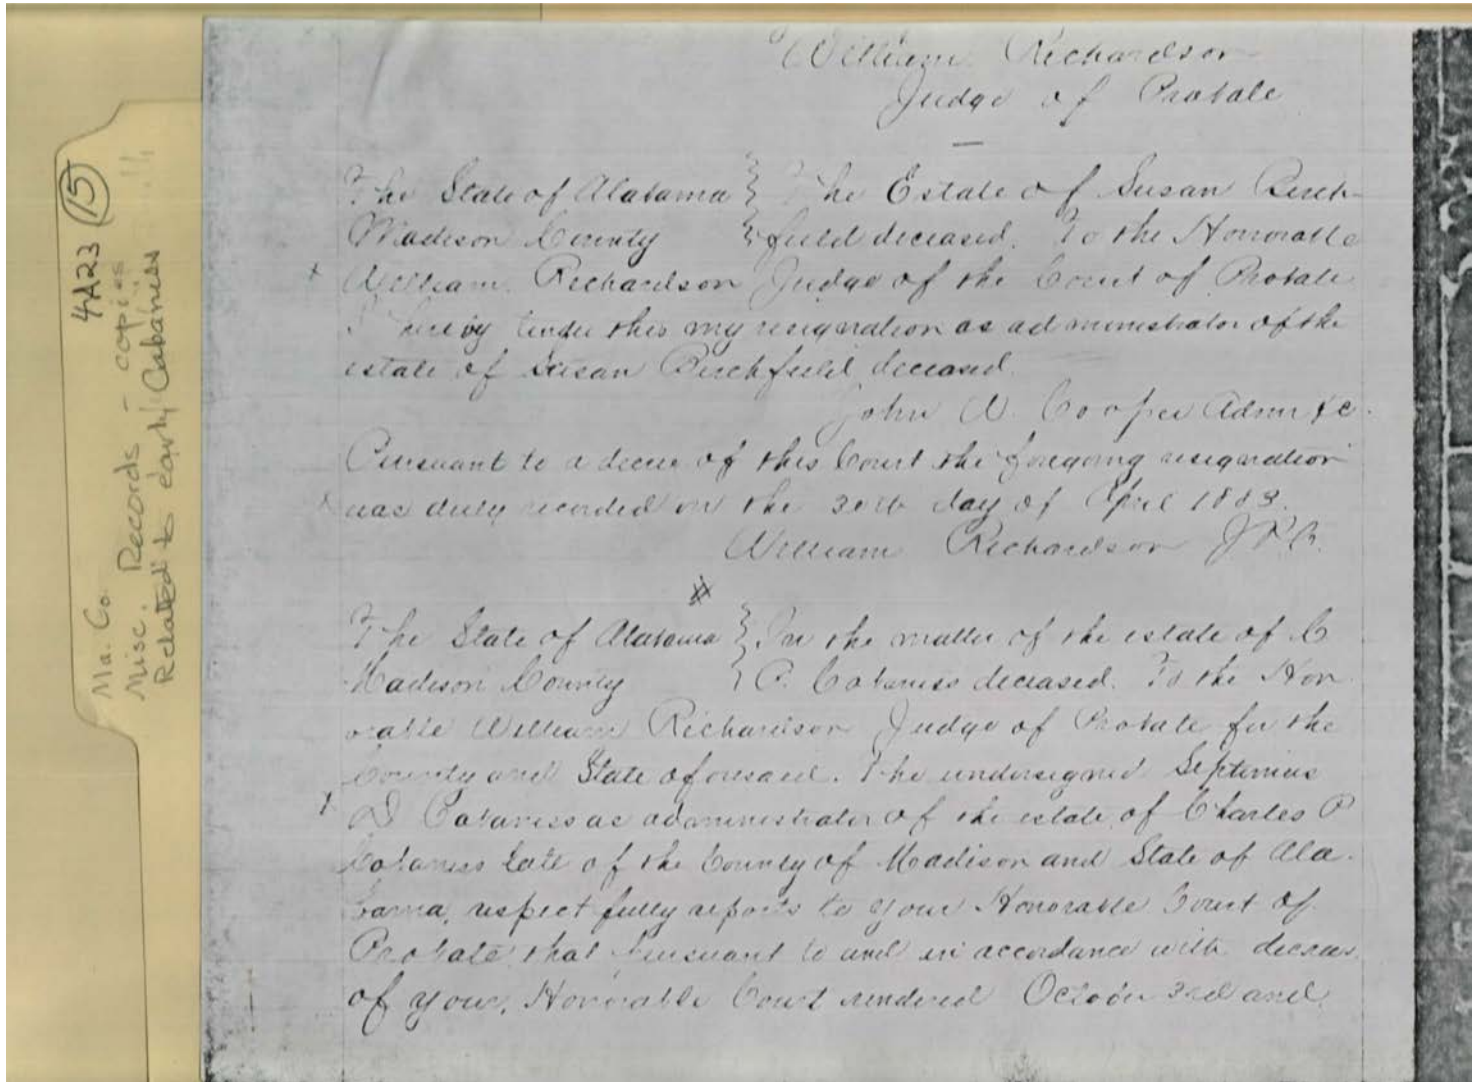 4A23 (15)
Ma. Co.
Misc. Records - copies
Related to early Cabaniss
William Richardson
Judge of Probate
The State of Alabama } The Estate of Susan Birch-
Madison County } field deceased. To the Honorable
x William Richardson Judge of the Court of Probate
I hereby tender this my resignation as administrator of the
estate of Susan Birchfield deceased.
John W. Cooper Admr &c.
Pursuant to a decree of this Court the foregoing resignation
x was duly recorded on the 30th day of April 1883.
William Richardson J.P.C.
The State of Alabama } In the matter of the estate of C
Madison County } P. Cabaniss deceased. To the Hon
orable William Richardson Judge of Probate for the
County and State aforesaid. The undersigned Septimus
D Cabaniss as administrator of the estate of Charles P
Cabaniss late of the County of Madison and State of Ala-
bama, respectfully reports to your Honorable Court of
Probate that pursuant to and in accordance with decrees
of your Honorable Court rendered October 3rd and